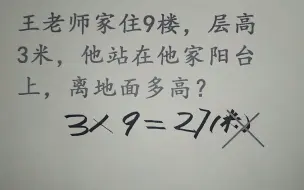 王老师家住9楼，层高
3米，他站在他家阳台
上，离地面多高？
3×9=27(米)